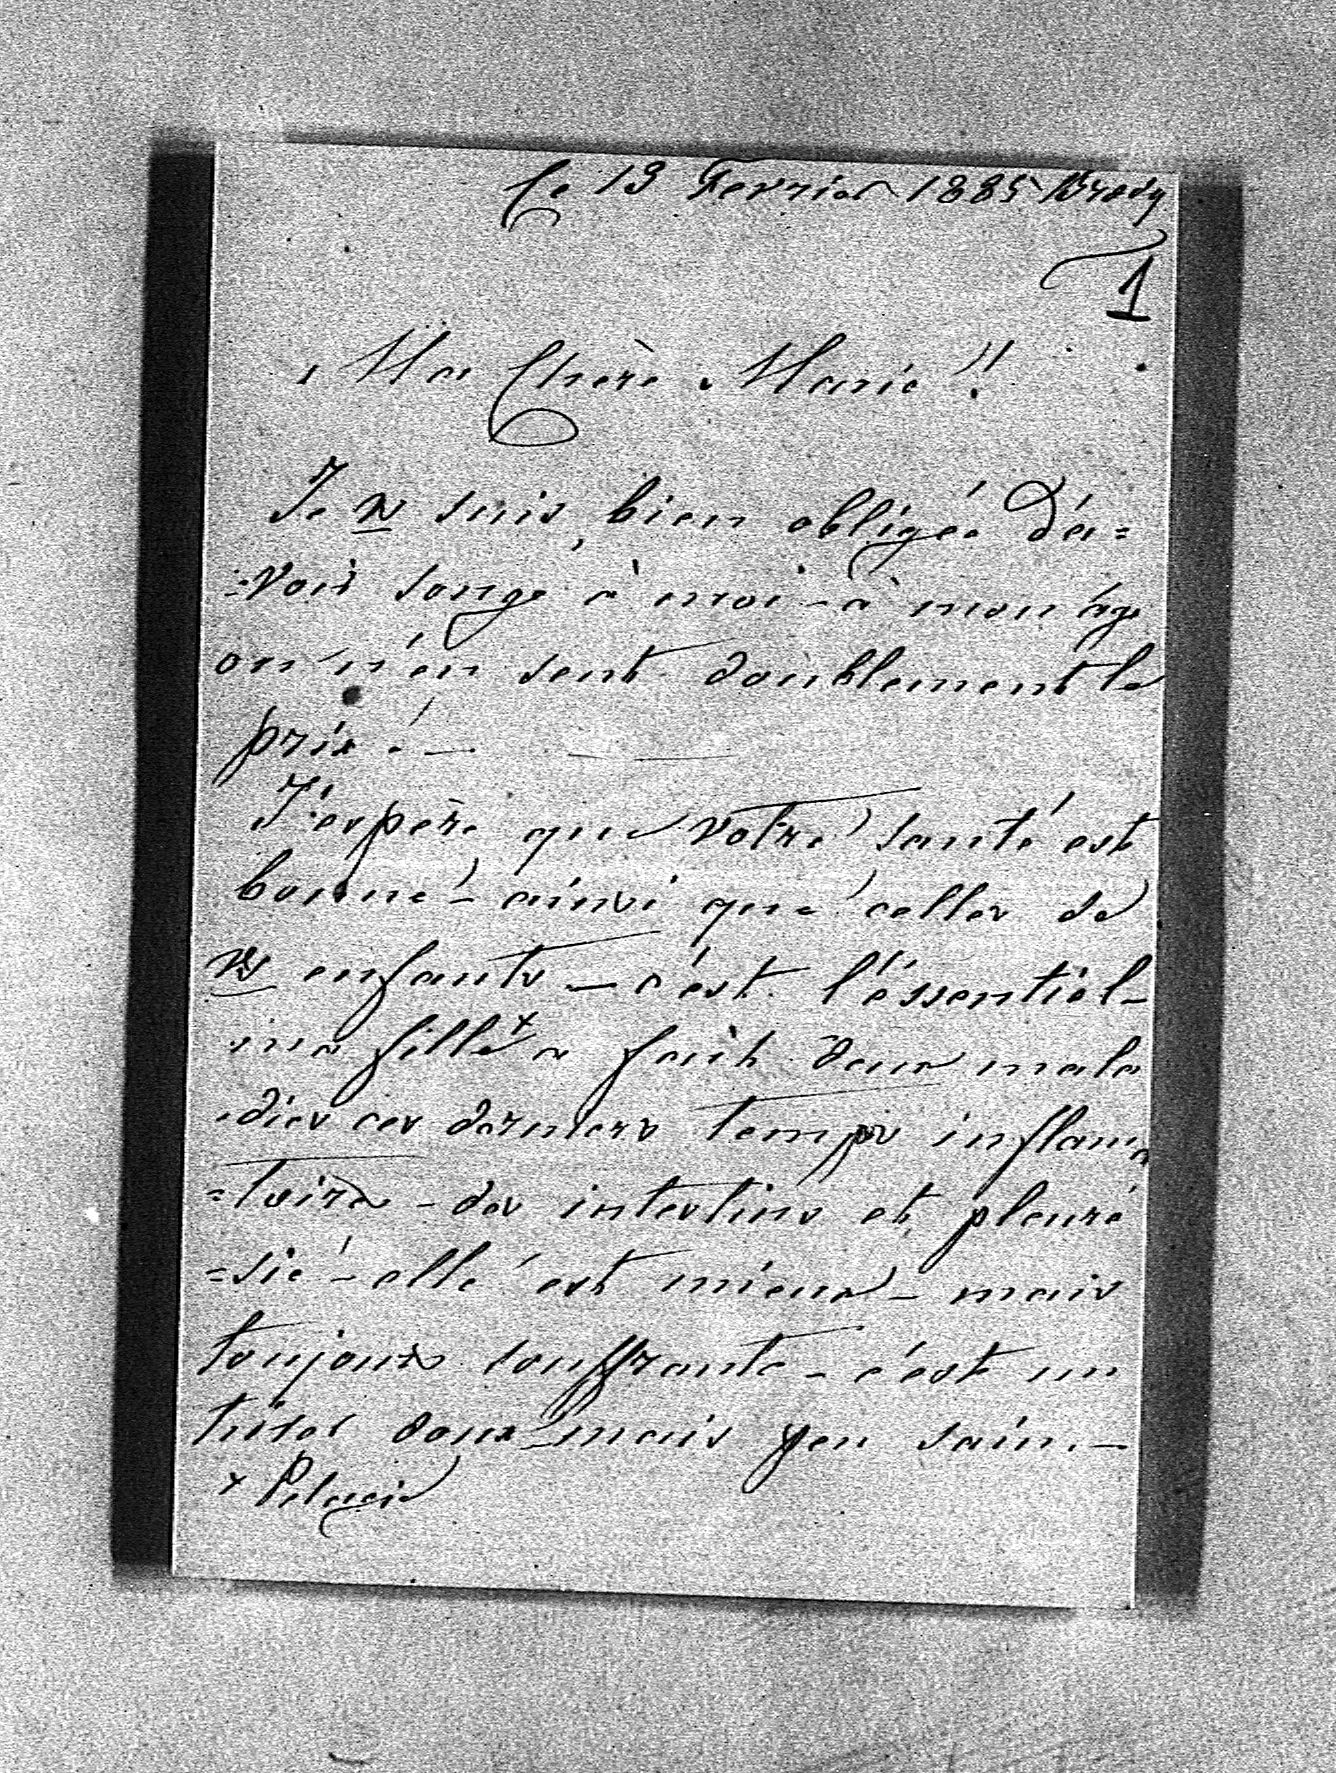 Ce 13 Fevrier 1885 Brody
1
Ma Chère Marie!!
Je vs suis bien obligée d'a=
=voir songé à moi - à mon âge
on n'en sent doublement le
prix! —
J'éspère que votre santé est
bonne - ainsi que celles de
vs enfants — c'est l'éssentiel -
ma fille x a fait deux mala
dies ces derniers temps inflama
=toire - des intestins et pleuré
=sie - elle est mieux - mais
toujours souffrante - c'est un
hiver doux - mais peu sain. —
x